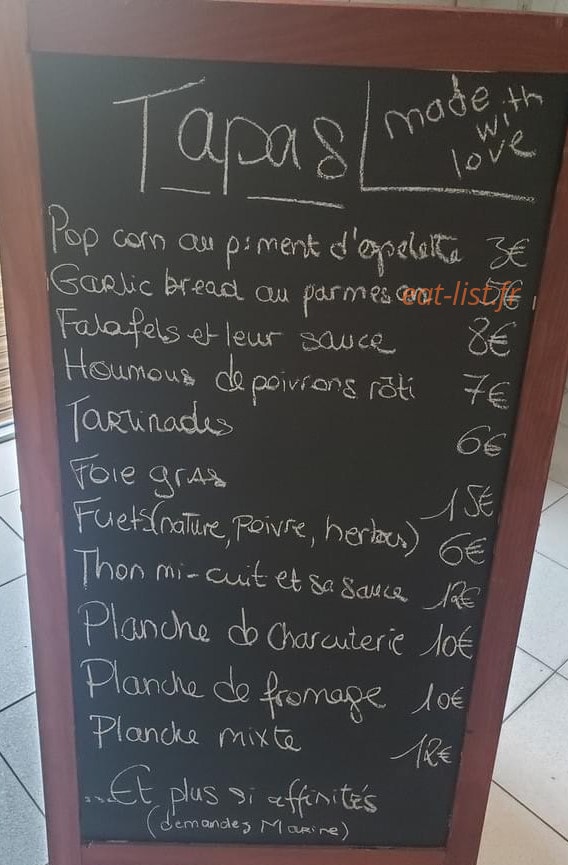 Tapas
made
with
love
Pop corn au piment d'espelette 3€
Garlic bread au parmesan 5€
eat-list.fr
Falafels et leur sauce 8€
Houmous de poivrons rôti 7€
Tartinades 6€
Foie gras 15€
Fuets (nature, Poivre, herbes) 6€
Thon mi-cuit et sa sauce 12€
Planche de charcuterie 10€
Planche de fromage 10€
Planche mixte 12€
...Et plus si affinités
(demandez Marine)